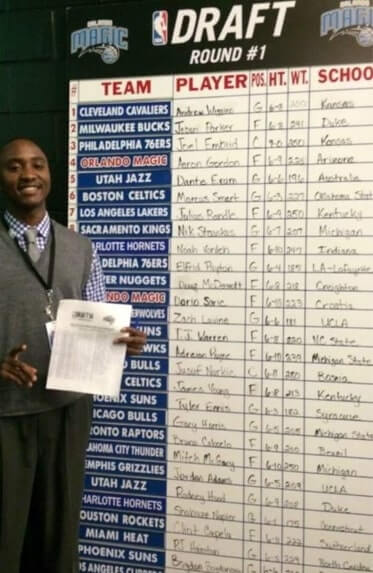 ORLANDO MAGIC NBA DRAFT ORLANDO MAGIC
ROUND #1
# TEAM PLAYER POS. HT. WT. SCHOO
1 CLEVELAND CAVALIERS Andrew Wiggins G 6-8 200 Kansas
2 MILWAUKEE BUCKS Jabari Parker F 6-8 241 Duke
3 PHILADELPHIA 76ERS Joel Embiid C 7-0 250 Kansas
4 ORLANDO MAGIC Aaron Gordon F 6-9 225 Arizona
5 UTAH JAZZ Dante Exum G 6-6 196 Australia
6 BOSTON CELTICS Marcus Smart G 6-3 227 Oklahoma State
7 LOS ANGELES LAKERS Julius Randle F 6-9 250 Kentucky
8 SACRAMENTO KINGS Nik Stauskas G 6-7 207 Michigan
HARLOTTE HORNETS Noah Vonleh F 6-10 247 Indiana
LADELPHIA 76ERS Elfrid Payton G 6-4 185 LA-Lafayette
VER NUGGETS Doug McDermott F 6-8 218 Creighton
NDO MAGIC Dario Saric F 6-10 223 Croatia
ERWOLVES Zach Lavine G 6-6 181 UCLA
UNS T.J. Warren F 6-8 220 NC State
WKS Adreian Payne F 6-10 239 Michigan State
O BULLS Jusuf Nurkic C 280 Bosnia
CELTICS James Young F 6-8 213 Kentucky
HOENIX SUNS Tyler Ennis G 6-3 182 Syracuse
ICAGO BULLS Gary Harris G 6-5 205 Michigan State
RONTO RAPTORS Bruno Caboclo F 6-9 200 Brazil
LAHOMA CITY THUNDER Mitch McGary F 6-10 250 Michigan
EMPHIS GRIZZLIES Jordan Adams G 6-5 209 UCLA
UTAH JAZZ Rodney Hood G 6-8 208 Duke
HARLOTTE HORNETS Shabazz Napier G 175 Connecticut
OUSTON ROCKETS Clint Capela F 222 Switzerland
MIAMI HEAT PJ Hairston G 6-5 229 North Carolina
PHOENIX SUNS Bogdan
OS ANGELES CLIPPERS
DRAFT